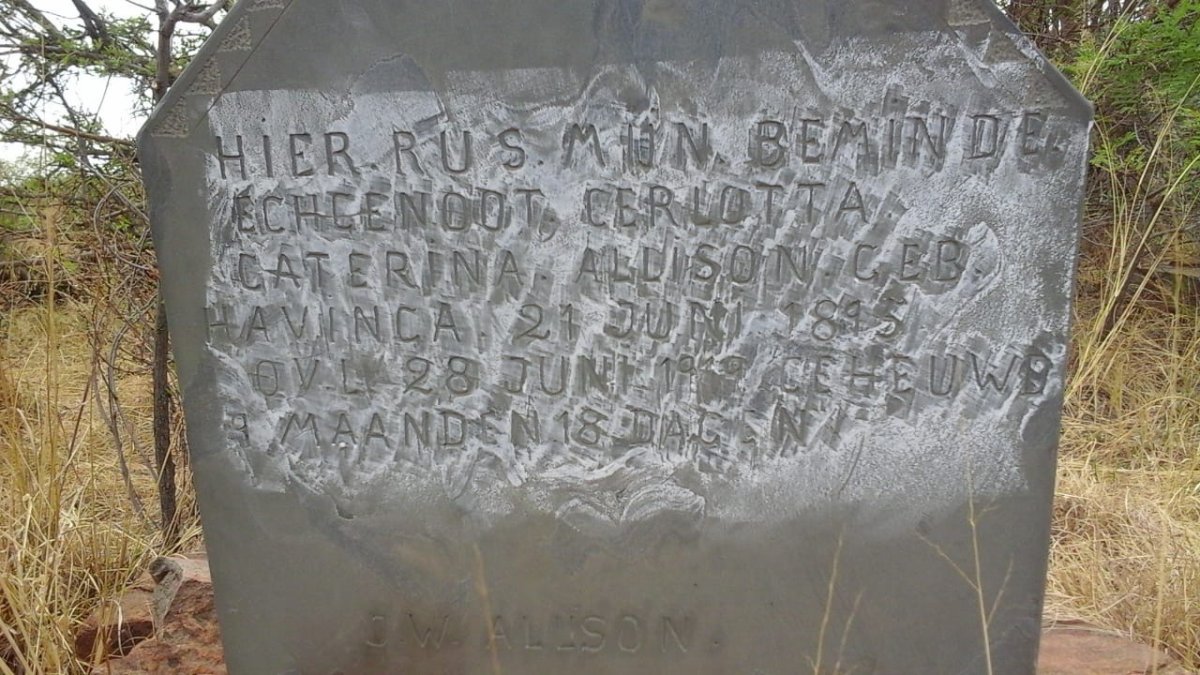 HIER. RUS. MIJN. BEMINDE.
ECHGENOOT. CERLOTTA.
CATERINA. ALLISON. GEB.
HAVINGA. 21 JUNI 1895
OVL. 28 JUNI. 1919 GEHEUWD
9 MAANDEN. 18 DAGEN.
J.W. ALLISON.